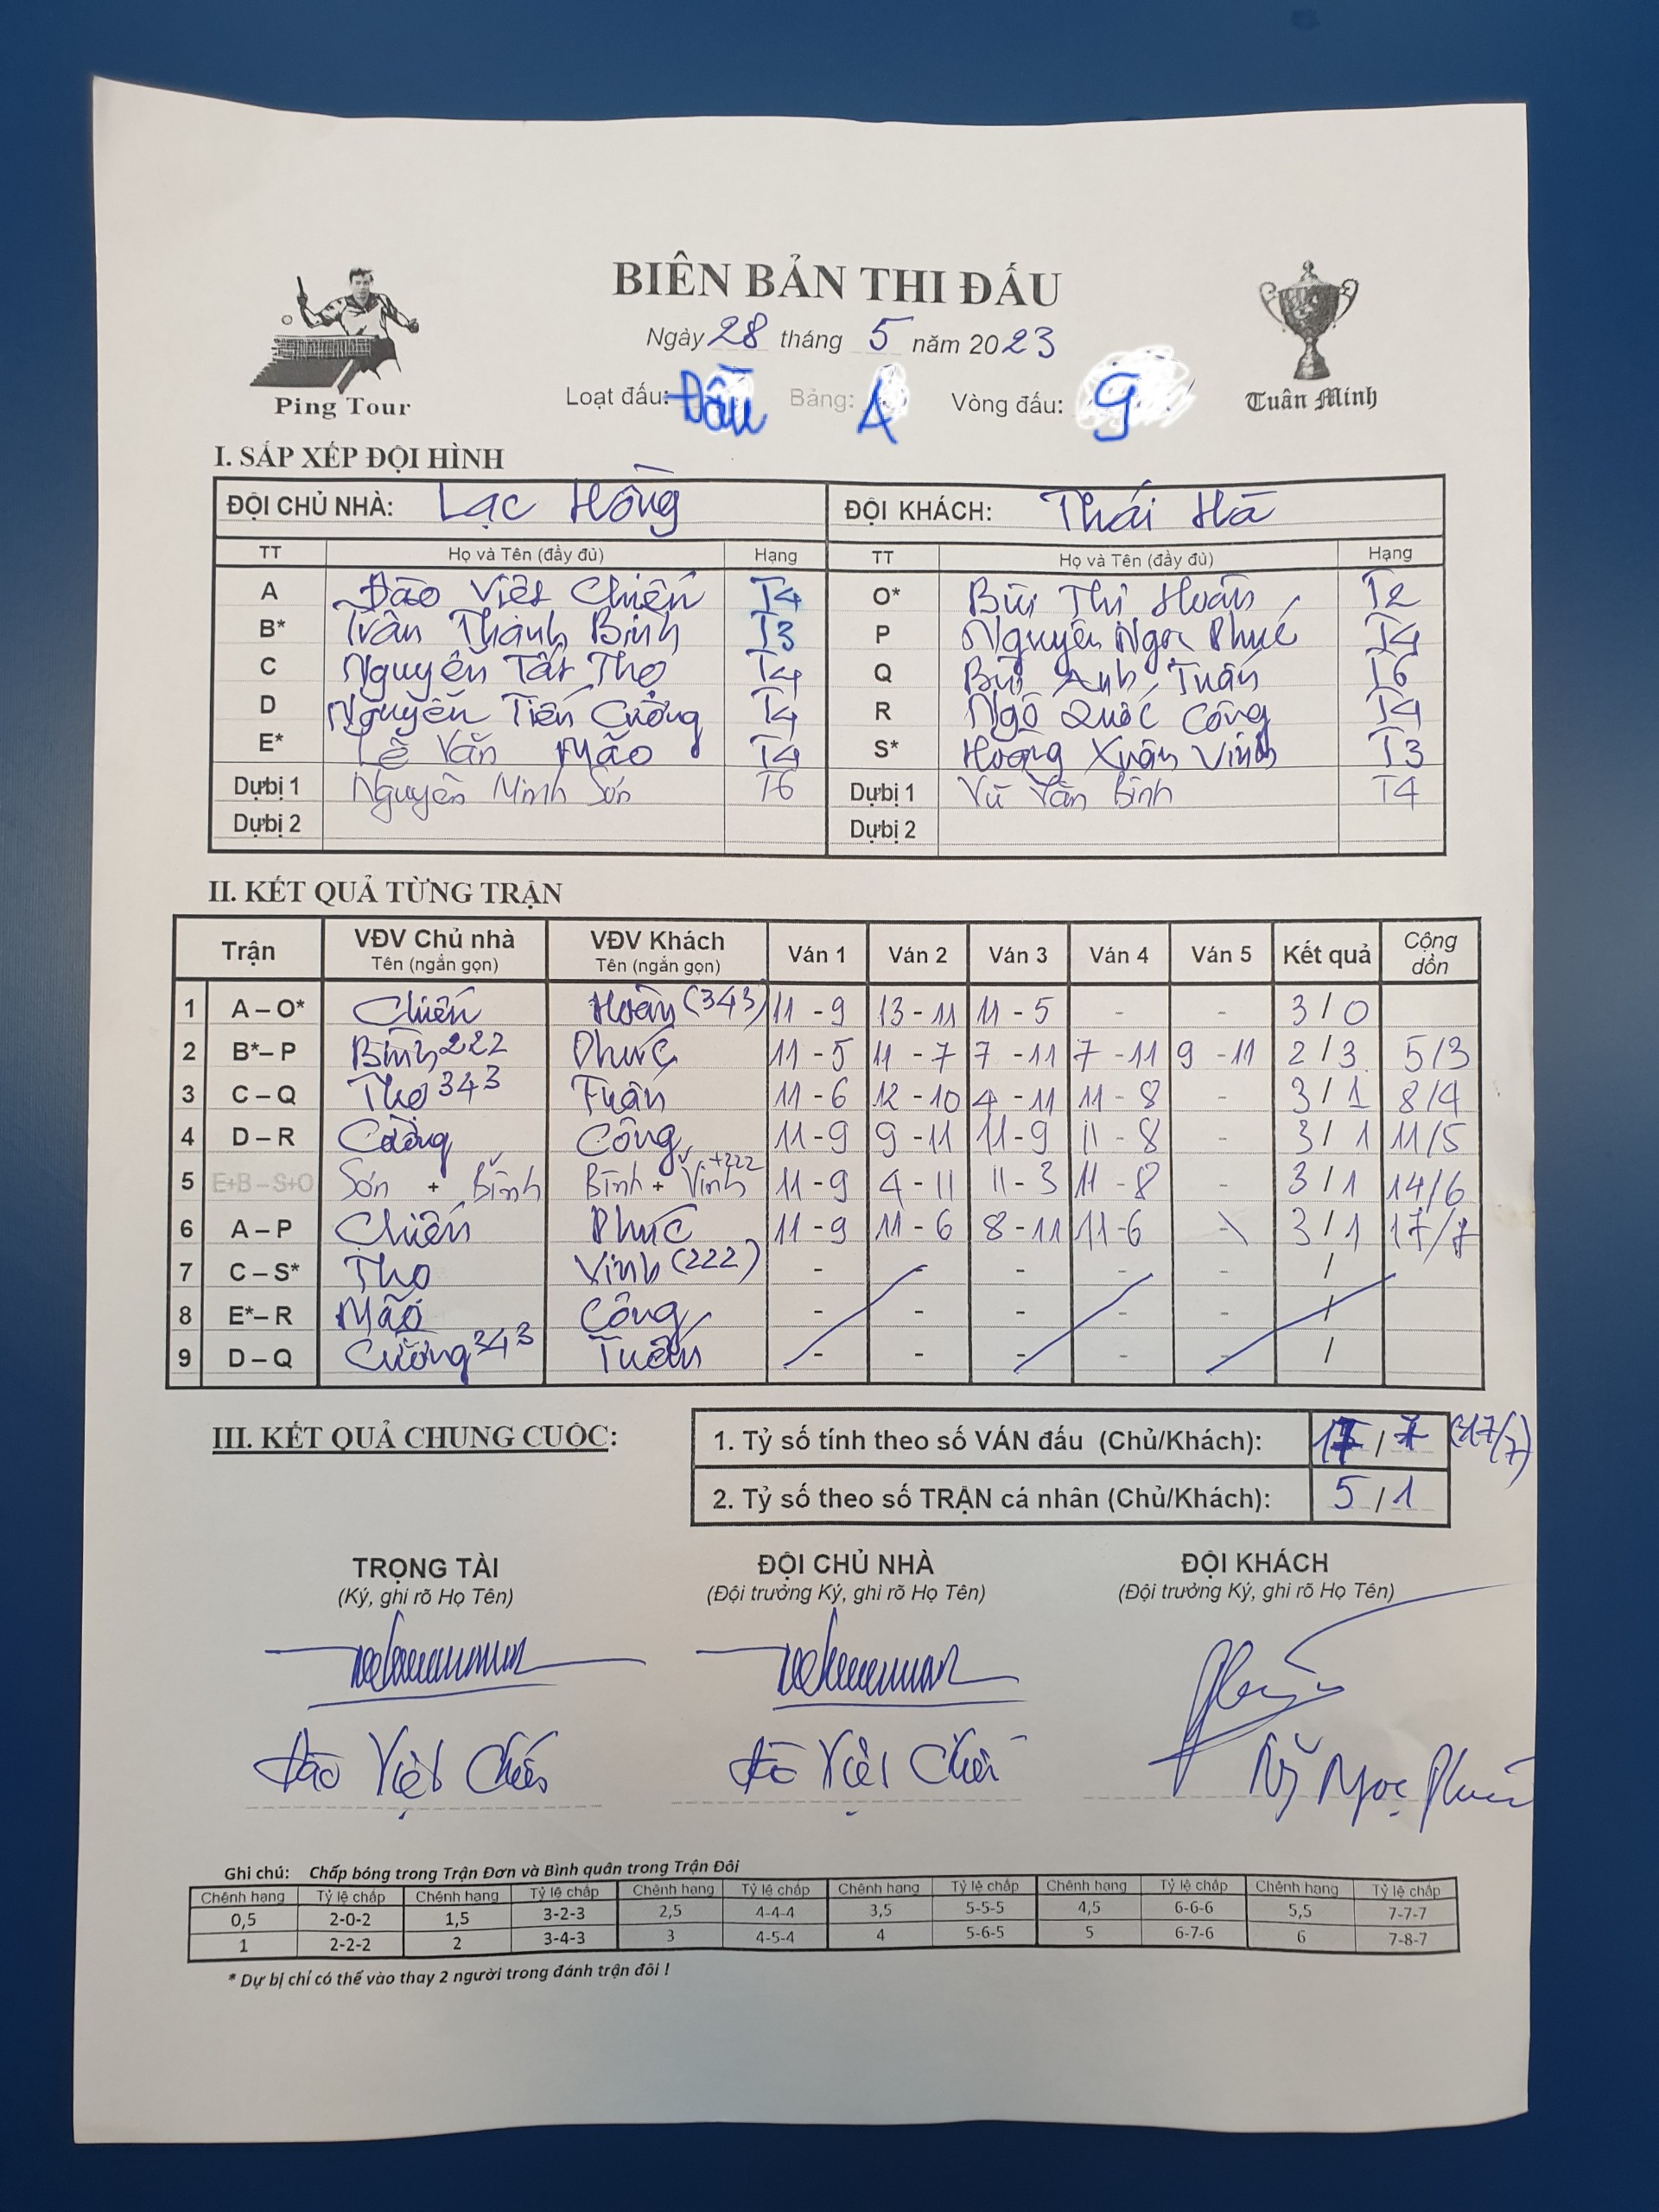 BIÊN BẢN THI ĐẤU
Ngày 28 tháng 5 năm 2023
Ping Tour
Loạt đấu: Đầu Bảng: A Vòng đấu: 9
Tuấn Minh
I. SẮP XẾP ĐỘI HÌNH
ĐỘI CHỦ NHÀ: Lạc Hồng ĐỘI KHÁCH: Thái Hà
TT Họ và Tên (đầy đủ) Hạng TT Họ và Tên (đầy đủ) Hạng
A Đào Việt Chiến T4 O* Bùi Thị Hoàn T2
B* Trần Thành Bình T3 P Nguyễn Ngọc Phúc T4
C Nguyễn Tất Thọ T4 Q Bùi Anh Tuấn T6
D Nguyễn Tiến Cường T4 R Ngô Quốc Công T4
E* Lê Văn Mão T4 S* Hoàng Xuân Vinh T3
Dự bị 1 Nguyễn Minh Sơn T6 Dự bị 1 Vũ Văn Bình T4
Dự bị 2 Dự bị 2
II. KẾT QUẢ TỪNG TRẬN
Trận VĐV Chủ nhà VĐV Khách Ván 1 Ván 2 Ván 3 Ván 4 Ván 5 Kết quả Cộng dồn
Tên (ngắn gọn) Tên (ngắn gọn)
1 A – O* Chiến Hoàn (343) 11 - 9 13 - 11 11 - 5 - - 3 / 0
2 B*– P Bình 222 Phúc 11 - 5 11 - 7 7 - 11 7 - 11 9 - 11 2 / 3 5/3
3 C – Q Thọ 343 Tuấn 11 - 6 12 - 10 4 - 11 11 - 8 - 3 / 1 8/4
4 D – R Cường Công 11 - 9 9 - 11 11 - 9 11 - 8 - 3 / 1 11/5
5 E+B – S+O Sơn + Bình Bình + Vinh +222 11 - 9 4 - 11 11 - 3 11 - 8 - 3 / 1 14/6
6 A – P Chiến Phúc 11 - 9 11 - 6 8 - 11 11 - 6 - 3 / 1 17/7
7 C – S* Thọ Vinh (222) - - - - - /
8 E*– R Mão Công - - - - - /
9 D – Q Cường 343 Tuấn - - - - - /
III. KẾT QUẢ CHUNG CUỘC:
1. Tỷ số tính theo số VÁN đấu (Chủ/Khách): 17 / 7 (17/7)
2. Tỷ số theo số TRẬN cá nhân (Chủ/Khách): 5 / 1
TRỌNG TÀI ĐỘI CHỦ NHÀ ĐỘI KHÁCH
(Ký, ghi rõ Họ Tên) (Đội trưởng Ký, ghi rõ Họ Tên) (Đội trưởng Ký, ghi rõ Họ Tên)
Đào Việt Chiến Đào Việt Chiến Ng Ngọc Phúc
Ghi chú: Chấp bóng trong Trận Đơn và Bình quân trong Trận Đôi
Chênh hạng Tỷ lệ chấp Chênh hạng Tỷ lệ chấp Chênh hạng Tỷ lệ chấp Chênh hạng Tỷ lệ chấp Chênh hạng Tỷ lệ chấp Chênh hạng Tỷ lệ chấp
0,5 2-0-2 1,5 3-2-3 2,5 4-4-4 3,5 5-5-5 4,5 6-6-6 5,5 7-7-7
1 2-2-2 2 3-4-3 3 4-5-4 4 5-6-5 5 6-7-6 6 7-8-7
* Dự bị chỉ có thể vào thay 2 người trong đánh trận đôi !